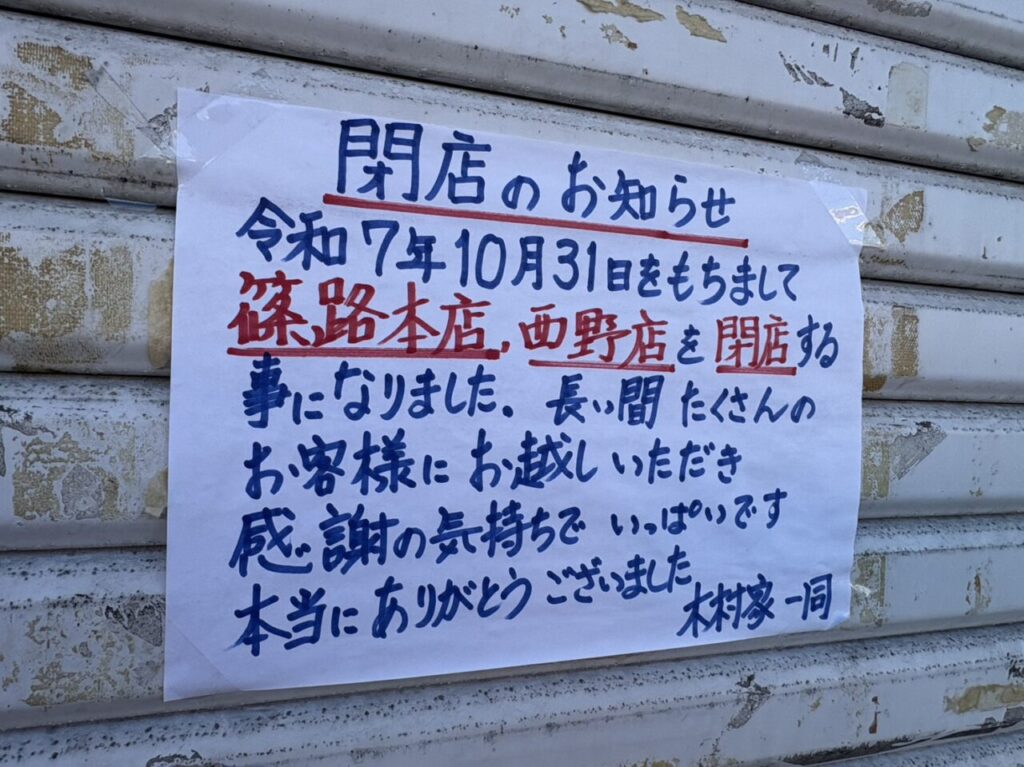 閉店のお知らせ
令和7年10月31日をもちまして
篠路本店.西野店を閉店する
事になりました.長い間たくさんの
お客様にお越しいただき
感謝の気持ちでいっぱいです
本当にありがとうございました
木村家一同